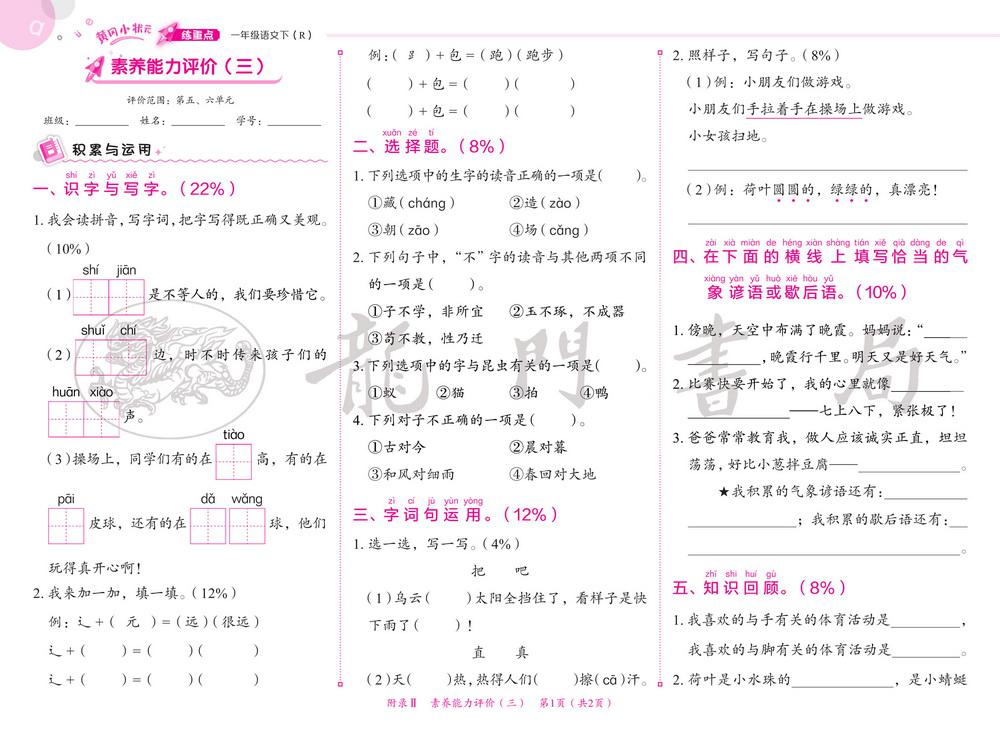 黄冈小状元 练重点 一年级语文下（R）
素养能力评价（三）
评价范围：第五、六单元
班级：________ 姓名：________ 学号：________
积累与运用
shí zì yǔ xiě zì
一、识字与写字。（22%）
1. 我会读拼音，写字词，把字写得既正确又美观。
（10%）
shí jiān
（1） 是不等人的，我们要珍惜它。
shuǐ chí
（2） 边，时不时传来孩子们的
huān xiào
声。
tiào
（3）操场上，同学们有的在 高，有的在
pāi dǎ wǎng
皮球，还有的在 球，他们
玩得真开心啊！
2. 我来加一加，填一填。（12%）
例：辶+（ 元 ）=（远）（很远）
辶+（ ）=（ ）（ ）
辶+（ ）=（ ）（ ）
例：（⻊）+包=（跑）（跑步）
（ ）+包=（ ）（ ）
（ ）+包=（ ）（ ）
xuǎn zé tí
二、选择题。（8%）
1. 下列选项中的生字的读音正确的一项是（ ）。
①藏（cháng） ②造（zào）
③朝（zāo） ④场（cǎng）
2. 下列句子中，“不”字的读音与其他两项不同
的一项是（ ）。
①子不学，非所宜 ②玉不琢，不成器
③苟不教，性乃迁
3. 下列选项中的字与昆虫有关的一项是（ ）。
①蚁 ②猫 ③拍 ④鸭
4. 下列对子不正确的一项是（ ）。
①古对今 ②晨对暮
③和风对细雨 ④春回对大地
zì cí jù yùn yòng
三、字词句运用。（12%）
1. 选一选，写一写。（4%）
把 吧
（1）乌云（ ）太阳全挡住了，看样子是快
下雨了（ ）！
直 真
（2）天（ ）热，热得人们（ ）擦（cā）汗。
2. 照样子，写句子。（8%）
（1）例：小朋友们做游戏。
小朋友们手拉着手在操场上做游戏。
小女孩扫地。
（2）例：荷叶圆圆的，绿绿的，真漂亮！
zài xià miàn de héng xiàn shàng tián xiě qià dàng de qì
四、在下面的横线上填写恰当的气
xiàng yàn yǔ huò xiē hòu yǔ
象谚语或歇后语。（10%）
1. 傍晚，天空中布满了晚霞。妈妈说：“______
________，晚霞行千里。明天又是好天气。”
2. 比赛快要开始了，我的心里就像________
________——七上八下，紧张极了！
3. 爸爸常常教育我，做人应该诚实正直，坦坦
荡荡，好比小葱拌豆腐——________。
★我积累的气象谚语还有：________
________；我积累的歇后语还有：__
________。
zhī shi huí gù
五、知识回顾。（8%）
1. 我喜欢的与手有关的体育活动是________，
我喜欢的与脚有关的体育活动是________。
2. 荷叶是小水珠的________，是小蜻蜓
附录Ⅱ 素养能力评价（三） 第1页（共2页）
龍門書局